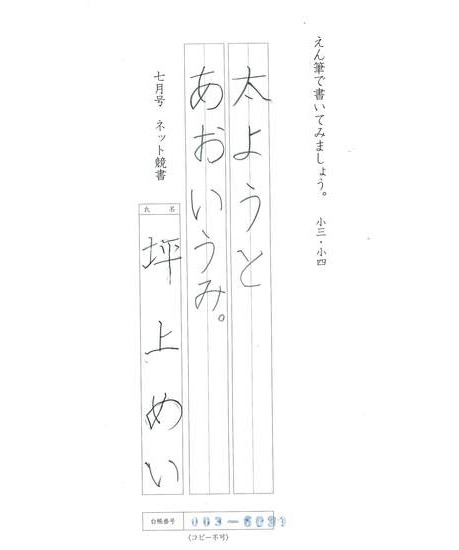 えん筆で書いてみましょう。 小三・小四
太ようと
あおいうみ。
七月号 ネット競書
氏名
坪上めい
台帳番号 003-6031
(コピー不可)